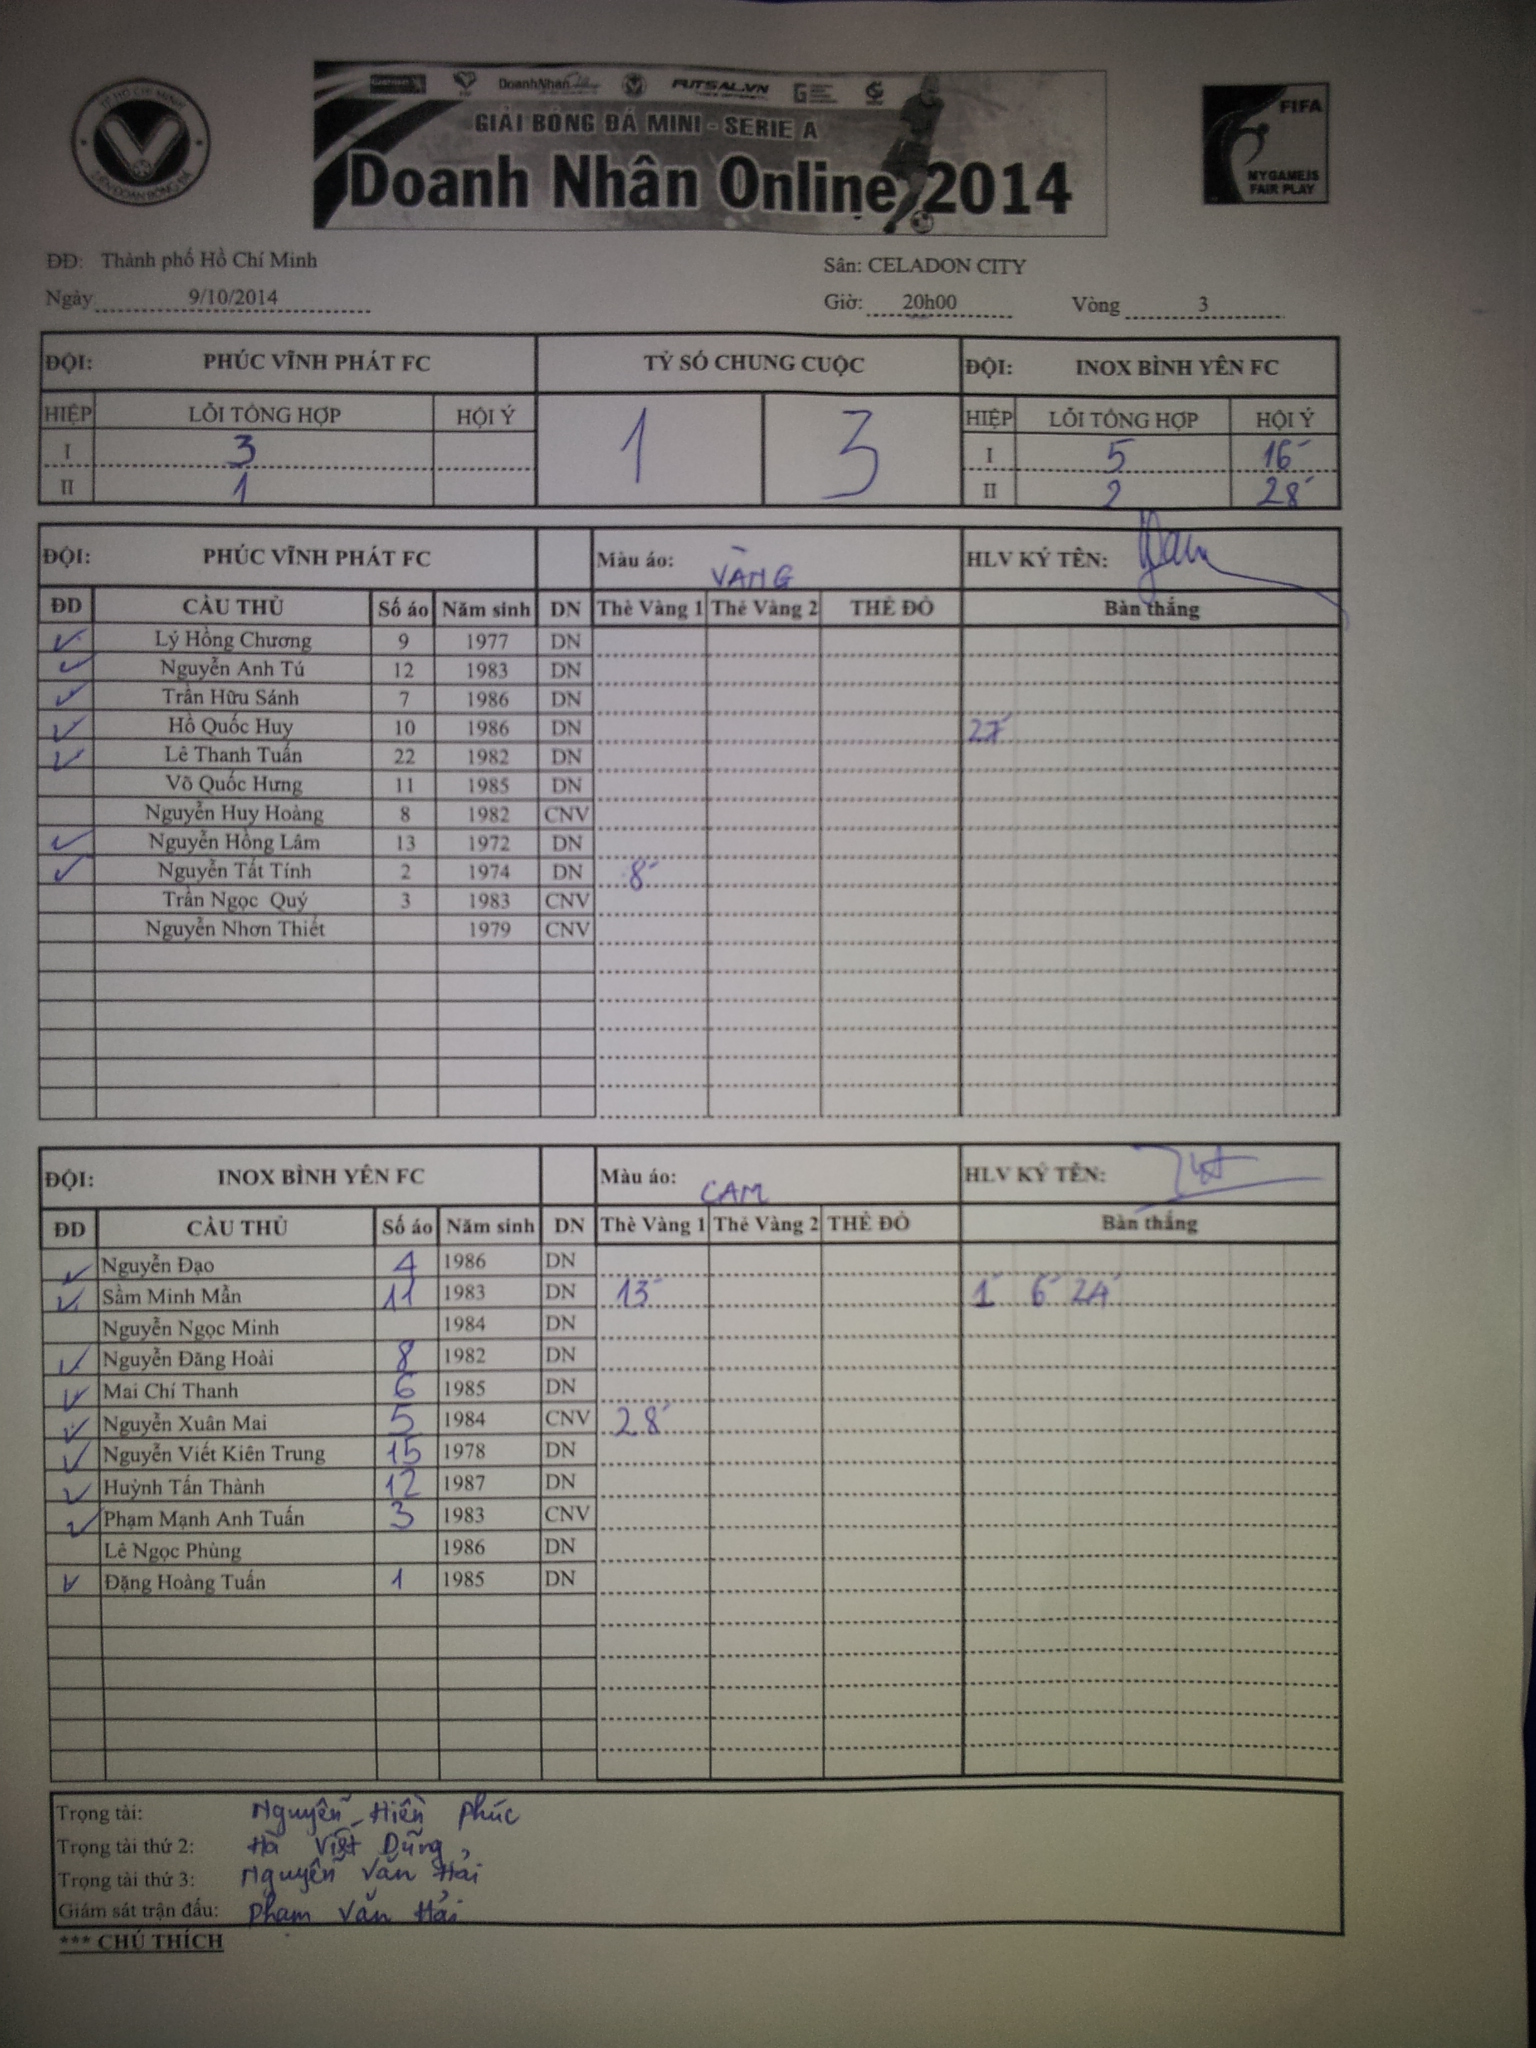 TP HỒ CHÍ MINH
LIÊN ĐOÀN BÓNG ĐÁ
DoanhNhân Online FUTSAL.VN
GIẢI BÓNG ĐÁ MINI - SERIE A
Doanh Nhân Online 2014
FIFA
MY GAME IS
FAIR PLAY
ĐĐ: Thành phố Hồ Chí Minh Sân: CELADON CITY
Ngày 9/10/2014 Giờ: 20h00 Vòng 3
ĐỘI: PHÚC VĨNH PHÁT FC TỶ SỐ CHUNG CUỘC ĐỘI: INOX BÌNH YÊN FC
HIỆP LỖI TỔNG HỢP HỘI Ý 1 3 HIỆP LỖI TỔNG HỢP HỘI Ý
I 3 I 5 16'
II 1 II 2 28'
ĐỘI: PHÚC VĨNH PHÁT FC Màu áo: VÀNG HLV KÝ TÊN:
ĐD CẦU THỦ Số áo Năm sinh DN Thẻ Vàng 1 Thẻ Vàng 2 THẺ ĐỎ Bàn thắng
✓ Lý Hồng Chương 9 1977 DN
✓ Nguyễn Anh Tú 12 1983 DN
✓ Trần Hữu Sánh 7 1986 DN
✓ Hồ Quốc Huy 10 1986 DN 27'
✓ Lê Thanh Tuấn 22 1982 DN
Võ Quốc Hưng 11 1985 DN
Nguyễn Huy Hoàng 8 1982 CNV
✓ Nguyễn Hồng Lâm 13 1972 DN
✓ Nguyễn Tất Tính 2 1974 DN 8'
Trần Ngọc Quý 3 1983 CNV
Nguyễn Nhơn Thiết 1979 CNV
ĐỘI: INOX BÌNH YÊN FC Màu áo: CAM HLV KÝ TÊN:
ĐD CẦU THỦ Số áo Năm sinh DN Thẻ Vàng 1 Thẻ Vàng 2 THẺ ĐỎ Bàn thắng
✓ Nguyễn Đạo 4 1986 DN
✓ Sầm Minh Mẫn 11 1983 DN 13' 1' 6' 24'
Nguyễn Ngọc Minh 1984 DN
✓ Nguyễn Đăng Hoài 8 1982 DN
✓ Mai Chí Thanh 6 1985 DN
✓ Nguyễn Xuân Mai 5 1984 CNV 28'
✓ Nguyễn Viết Kiên Trung 15 1978 DN
✓ Huỳnh Tấn Thành 12 1987 DN
✓ Phạm Mạnh Anh Tuấn 3 1983 CNV
Lê Ngọc Phùng 1986 DN
✓ Đặng Hoàng Tuấn 1 1985 DN
Trọng tài: Nguyễn Hiền Phúc
Trọng tài thứ 2: Hà Việt Dũng
Trọng tài thứ 3: Nguyễn Văn Hải
Giám sát trận đấu: Phạm Văn Hải
*** CHÚ THÍCH